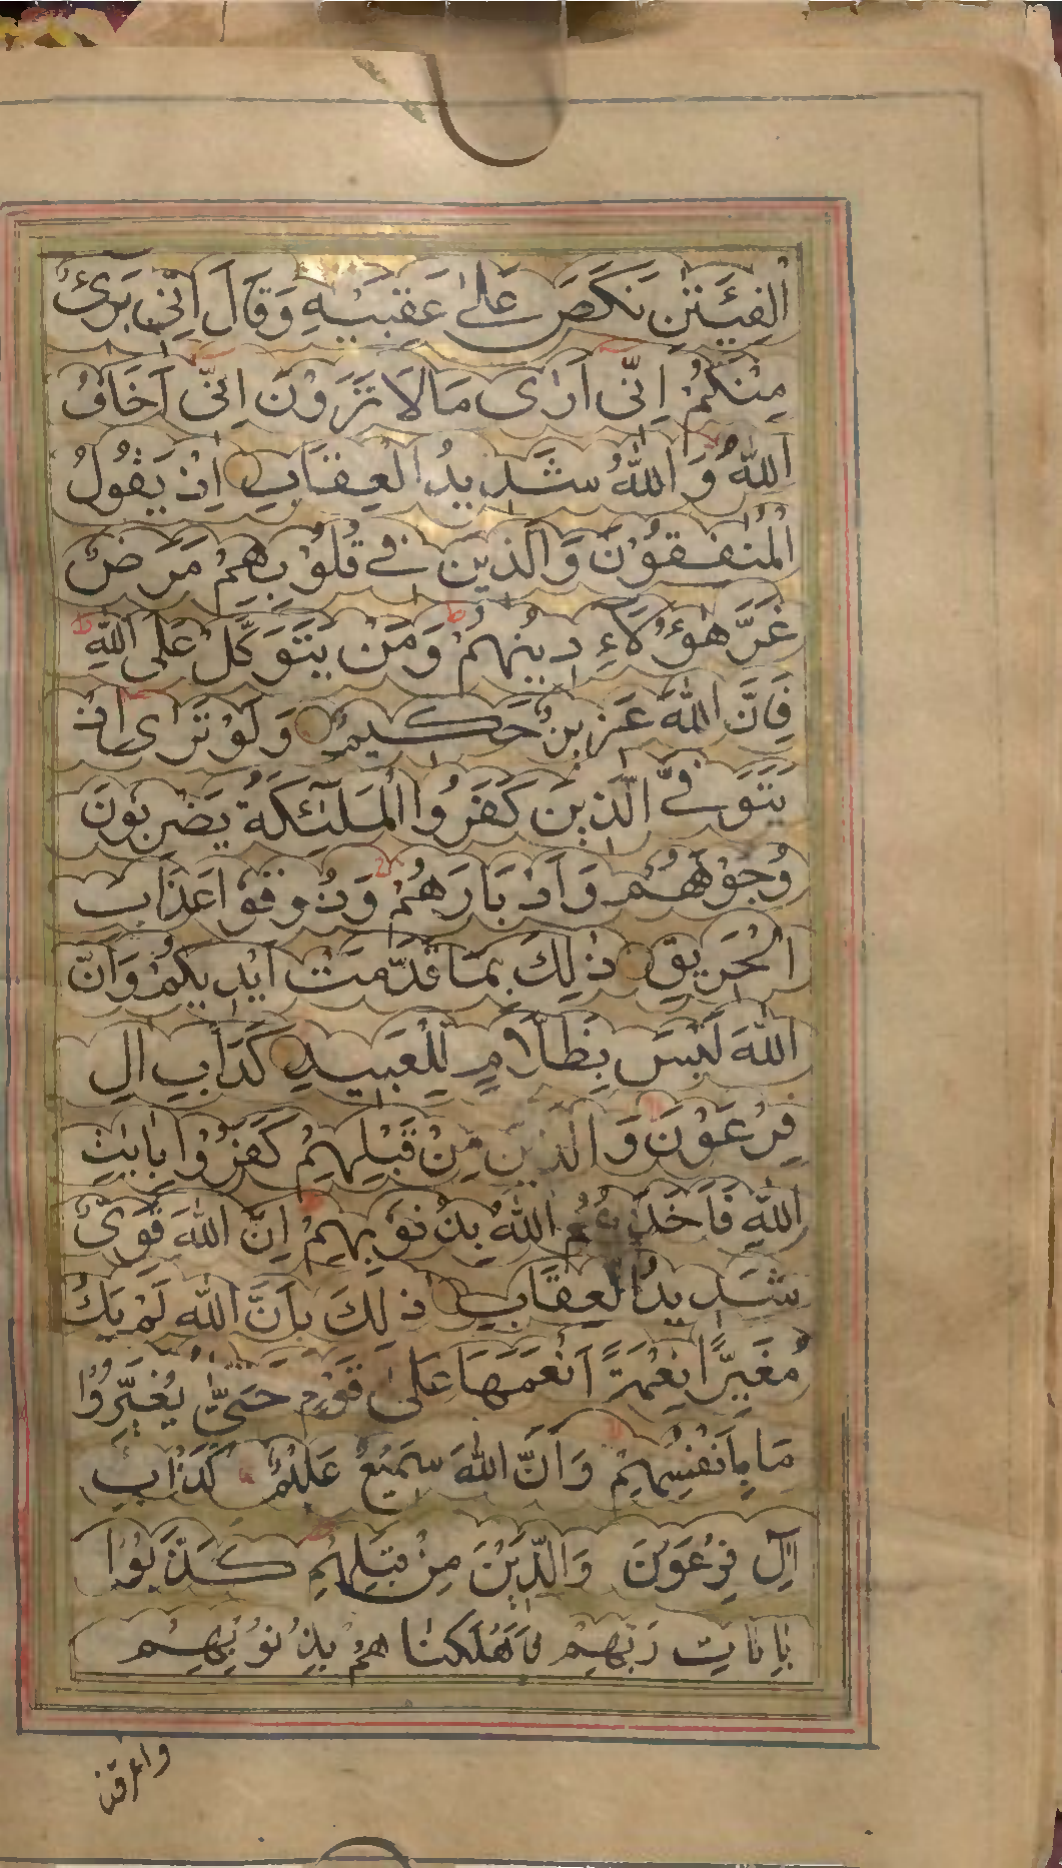 الْفِئَتٰنِ نَكَصَ عَلٰى عَقِبَيْهِ وَقَالَ اِنِّي بَرِىْٓءٌ
مِنْكُمْ اِنِّىْٓ اَرٰى مَا لَا تَرَوْنَ اِنِّىْٓ اَخَافُ
اللّٰهَ وَ اللّٰهُ شَدِيْدُ الْعِقَابِ اِذْ يَقُوْلُ
الْمُنٰفِقُوْنَ وَالَّذِيْنَ فِيْ قُلُوْبِهِمْ مَرَضٌ
غَرَّ هٰٓؤُلَآءِ دِيْنُهُمْ ط وَمَنْ يَّتَوَكَّلْ عَلَى اللّٰهِ
فَاِنَّ اللّٰهَ عَزِيْزٌ حَكِيْمٌ وَلَوْ تَرٰٓى اِذْ
يَتَوَفَّى الَّذِيْنَ كَفَرُوا الْمَلٰٓئِكَةُ يَضْرِبُوْنَ
وُجُوْهَهُمْ وَاَدْبَارَهُمْ وَذُوْقُوْا عَذَابَ
الْحَرِيْقِ ذٰلِكَ بِمَا قَدَّمَتْ اَيْدِيْكُمْ وَاَنَّ
اللّٰهَ لَيْسَ بِظَلَّامٍ لِّلْعَبِيْدِ كَدَاْبِ اٰلِ
فِرْعَوْنَ وَالَّذِيْنَ مِنْ قَبْلِهِمْ كَفَرُوْا بِاٰيٰتِ
اللّٰهِ فَاَخَذَهُمُ اللّٰهُ بِذُنُوْبِهِمْ اِنَّ اللّٰهَ قَوِىٌّ
شَدِيْدُ الْعِقَابِ ذٰلِكَ بِاَنَّ اللّٰهَ لَمْ يَكُ
مُغَيِّرًا نِعْمَةً اَنْعَمَهَا عَلٰى قَوْمٍ حَتّٰى يُغَيِّرُوْا
مَا بِاَنْفُسِهِمْ وَاَنَّ اللّٰهَ سَمِيْعٌ عَلِيْمٌ كَدَاْبِ
اٰلِ فِرْعَوْنَ وَالَّذِيْنَ مِنْ قَبْلِهِمْ كَذَّبُوْا
بِاٰيَاتِ رَبِّهِمْ فَاَهْلَكْنَاهُمْ بِذُنُوْبِهِمْ
واغرقنا